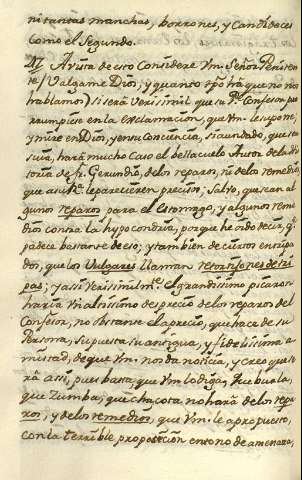 ni tantas manchas, borrones, y candideces
como el Segundo.
A vista de esto considere Vm. Señor Peniten
te (Valgame Dios, y quanto tpõ ha que no nos
hablamos) si será verisimil que su Pe. Confesor pro
rrumpiese en la exclamacion, que Vm. le supone;
y mire en Dios, y en su conciencia, si quando, que ta
suia, hará mucho caso el bellacuelo Autor de la His
toria de fr. Gerundio, de los reparos, ni de los remedios,
que a su Pe. le parecieren precisos; Salvo, que sean al
gunos reparos para el Estomago, y algunos reme
dios contra la hypocondria, porque he oido decir, que
padece bastante de eso; y tambien de ciertos entripa
dos, que los Vulgares llaman retortijones de tri
pas; y assi verisimilmte. el grandissimo picaron
haria un altissimo desprecio de los reparos del
Confesor, no obstante el aprecio, que hace de su
Persona, supuesta su antigua, y fidelissima a
mistad, de que Vm. nos da noticia, y creo que se
rá assi, pues basta, que Vm. lo diga. Que burla,
que Zumba, que chacota no hará de los repa
ros, y de los remedios, que Vm. le a propuesto,
con la terrible proposicion en tono de amenaza,